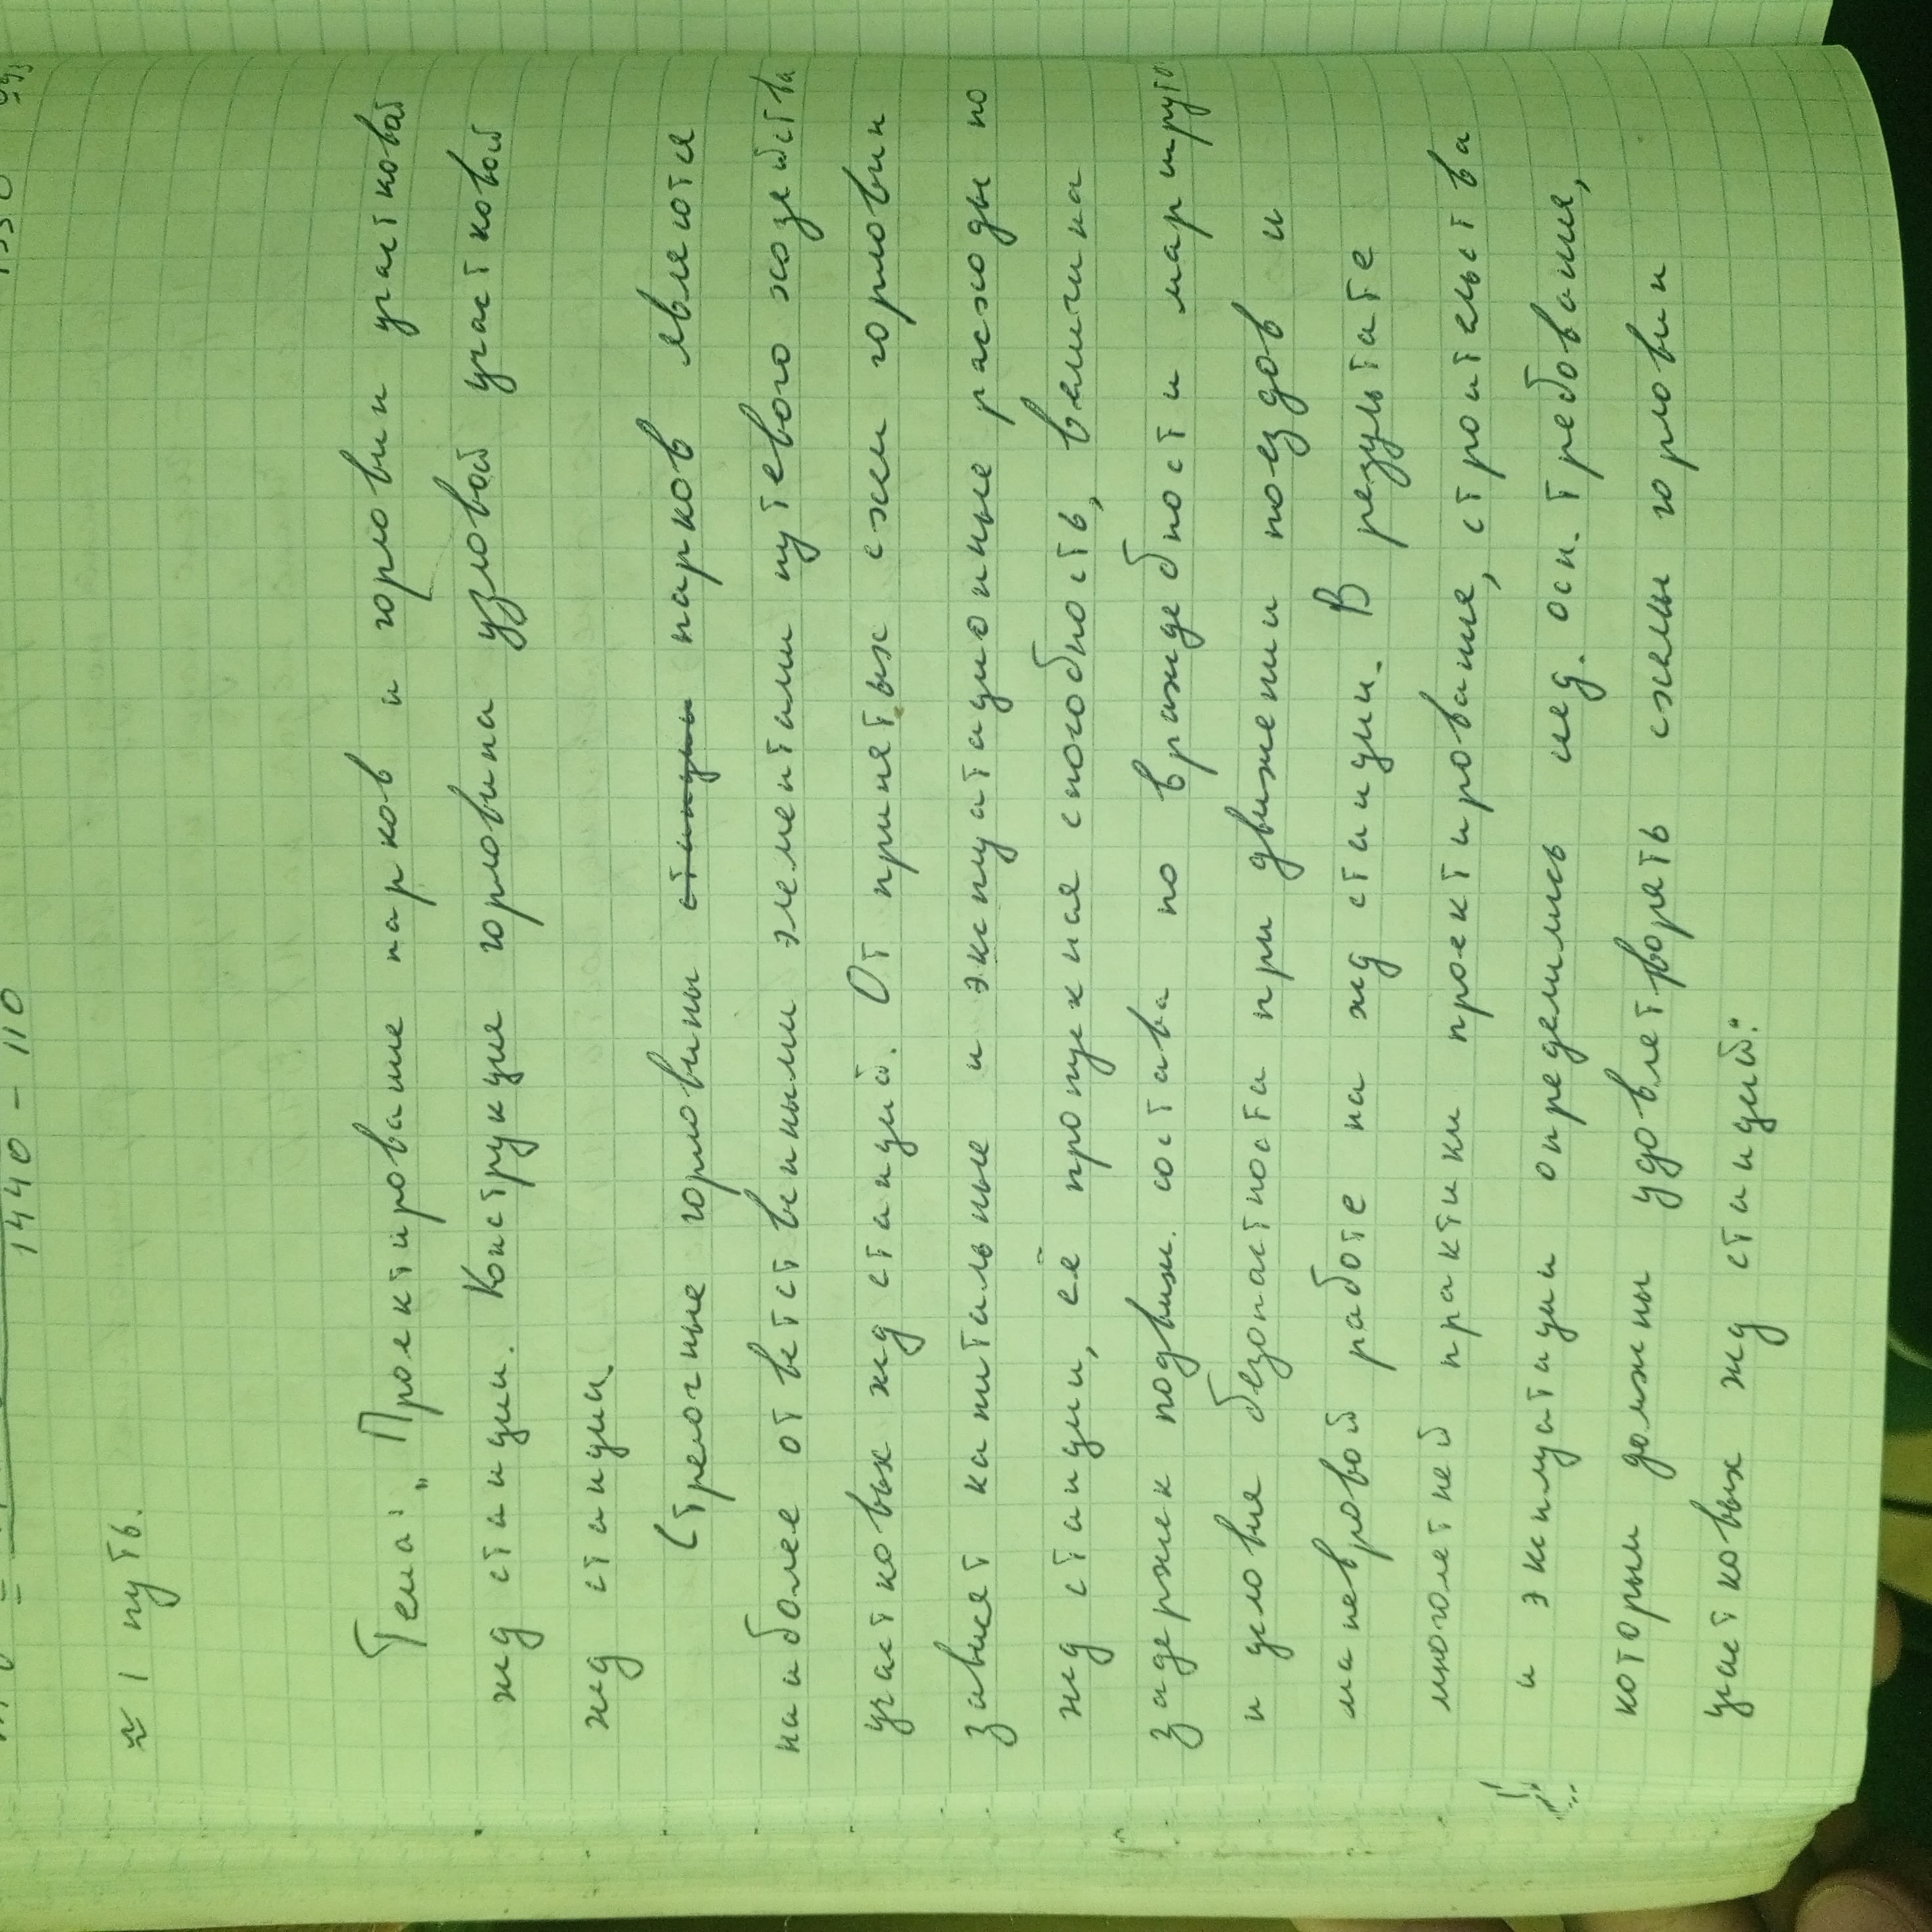 1440 - 110
≈ 1 путь.
Тема: „ Проектирование парков и горловин участковой
жд станции. Конструкция горловина узловой участковой
жд станции.
Стрелочные горловины станции парков являются
наиболее ответственными элементами путевого хозяйства
участковых жд станций. От принятых схем горловин
зависят капитальные и эксплуатационные расходы по
жд станции, её пропускная способность, величина
задержек подвиж. состава по враждебности маршруто
и условия безопастноста при движении поездов и
маневровой работе на жд станции. В результате
многолетней практики проектирование, строительства
и эксплуатации определились след. осн. требование,
которым должны удовлетворять схемы горловин
участковых жд станций: